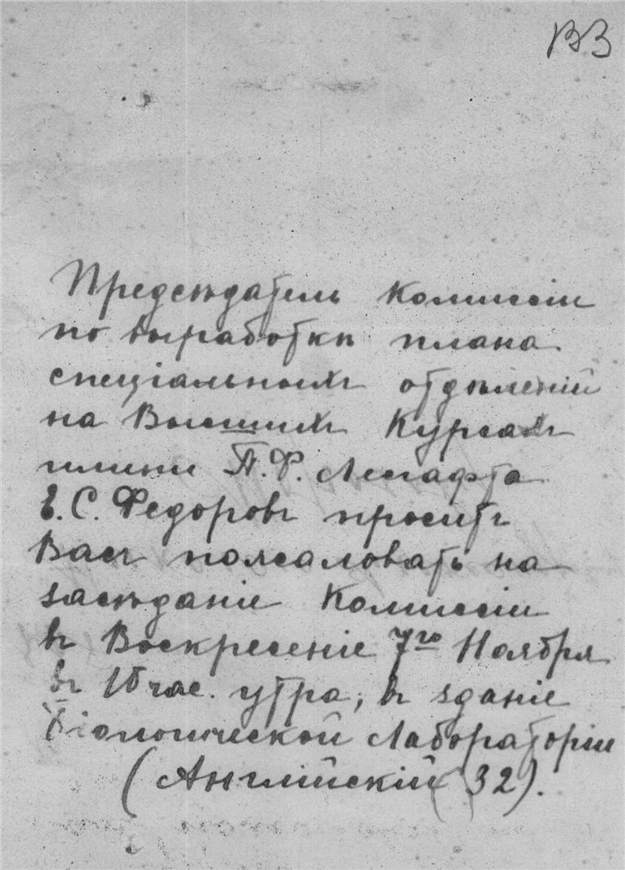 133
Предсѣдатель Комиссіи
по выработкѣ плана
спеціальныхъ отдѣленій
на Высшихъ Курсахъ
имени П. Ф. Лесгафта
Е. С. Федоровъ проситъ
Васъ пожаловать на
засѣданіе Комиссіи
въ Воскресеніе 7го Ноября
въ 10 час. утра, въ зданіе
Біологической Лабораторіи
(Англійскій 32).